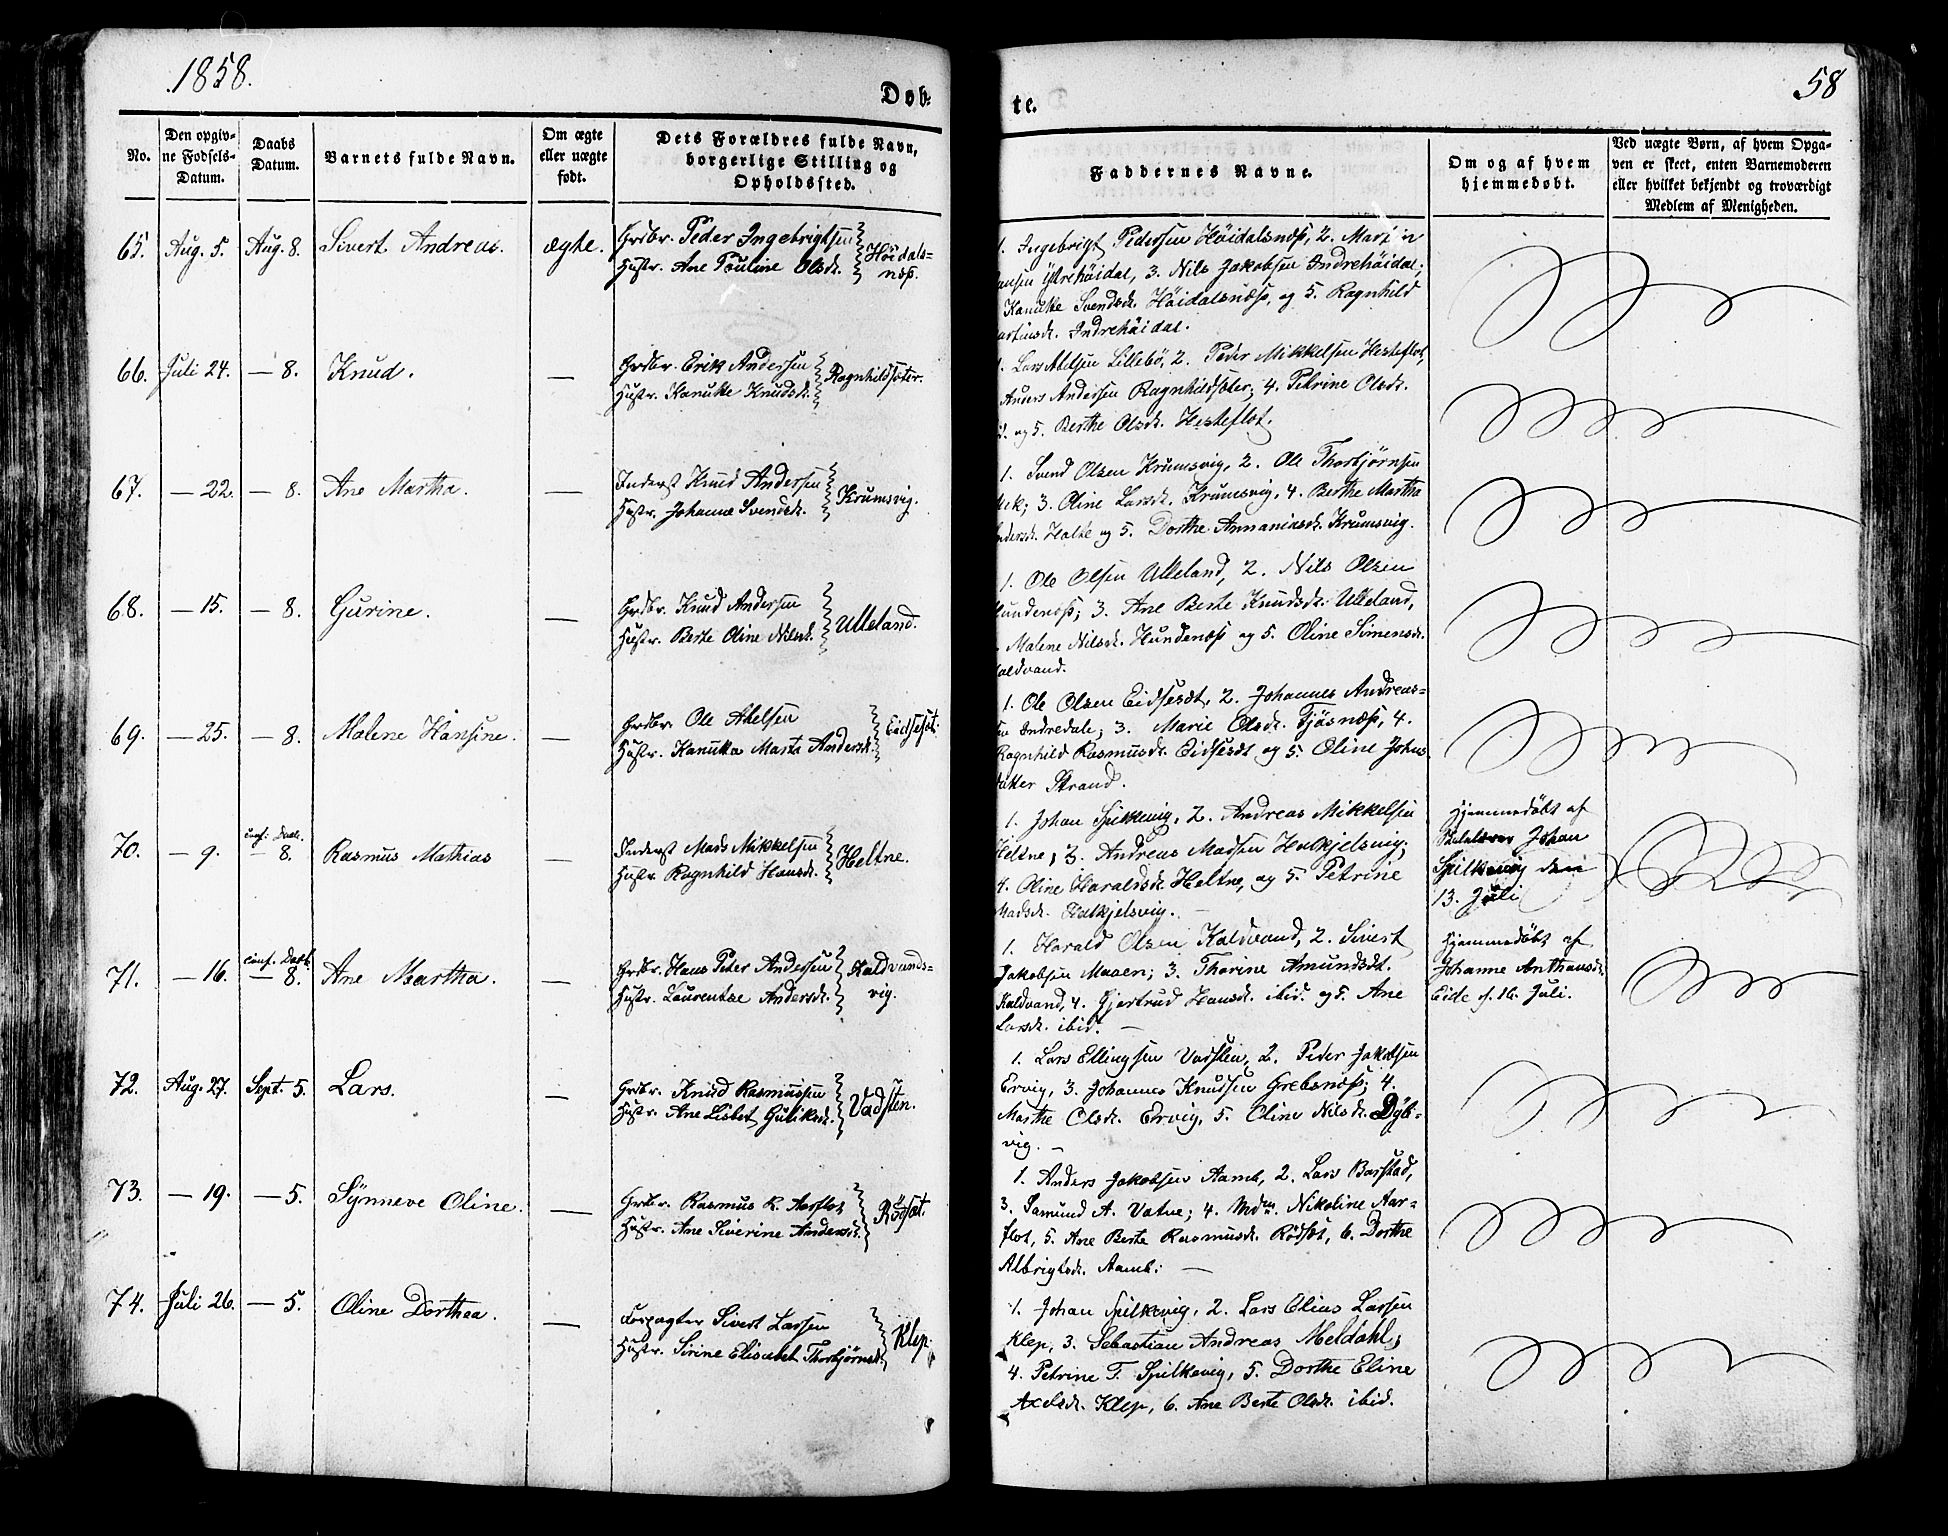 1858.
58
Døb-
te.
No.
Den opgiv-
ne Fødsels-
Datum.
Daabs
Datum.
Barnets fulde Navn.
Om ægte
eller uægte
født.
Dets Forældres fulde Navn,
borgerlige Stilling og
Opholdssted.
Faddernes Navne.
Om og af hvem
hjemmedøbt.
Ved uægte Børn, af hvem Opga-
ven er skeet, enten Barnemoderen
eller hvilket bekjendt og troværdigt
Medlem af Menigheden.
65. Aug. 5. Aug. 8. Sivert Andreas. ægte.
Grdbr. Peder Ingebrigtsen
Hustr. Ane Pouline Olsdr.
Höidals=
næs.
1. Ingebrigt Pedersen Höidalsnæss, 2. Martin
ansen Ytrehöidal, 3. Nils Jakobsen Indrehöidal;
Kanutte Svendsdr. Höidalsnæss, og 5. Ragnhild
artinsdr. Indrehöidal.
66. Juli 24. — 8. Knud. —
Grdbr. Erik Andersen
Hustr. Kanutte Knudsdr.
Ragnhildsæter.
1. Lars Abelsen Lillebö, 2. Peder Mikkelsen Hesteflot,
Anders Andersen Ragnhildsæter; 4. Petrine Olsdr.
og 5. Berthe Olsdr. Hesteflot.
67. — 22. — 8. Ane Martha. —
Inderst Knud Andersen
Hustr. Johanne Svendsdr.
Krumsvig.
1. Svend Olsen Krumsvig, 2. Ole Thorbjörnsen
3. Oline Larsdr. Krumsvig, 4. Berthe Martha
ndersdr. Holte og 5. Dorthe Annaniasdr. Krumsvig.
68. — 15. — 8. Gurine. —
Grdbr. Knud Andersen
Hustr. Berte Oline Nilsdr.
Ulleland.
1. Ole Olsen Ulleland, 2. Nils Olsen
Hundenæss; 3. Ane Berte Knudsdr. Ulleland,
Malene Nilsdr. Hundenæss og 5. Oline Simensdr.
aldvand.
69. — 25. — 8. Malene Hansine. —
Grdbr. Ole Abelsen
Hustr. Kanutta Marta Andersdr.
Eidsesæt.
1. Ole Olsen Eidsesæt, 2. Johannes Andreas=
sen Indredale; 3. Marie Olsdr. Tjösnæss, 4.
Ragnhild Rasmusdr. Eidsesæt og 5. Oline Johns
datter Strand.
70. — 9. conf: Daab. — 8. Rasmus Mathias —
Inderst Mads Mikkelsen
Hustr. Ragnhild Hansdr.
Heltne.
1. Johan Spilkevig, 2. Andreas Mikkelsen
Heltne, 3. Andreas Madsen Hatkjelsvig;
4. Oline Haraldsdr. Heltne, og 5. Petrine
Madsdr. Hatkjelsvig. —
Hjemmedöbt af
Johan
Spilkevig den
13. Juli
71. — 16. conf. Daab. — 8. Ane Martha. —
Grdbr. Hans Peter Andersen
Hustr. Laurentse Andersdr.
Kaldvands-
vig.
1. Harald Olsen Kaldvand, 2. Sivert
Jakobsen Moaen; 3. Thorine Amundsdr.
Kaldvand, 4. Gjertrud Hansdr. ibid. og 5. Ane
Larsdr. ibid. —
Hjemmedöbt af
Johanne Anthonsdr.
Eide d. 16. Juli.
72. Aug. 27. Sept. 5. Lars. —
Grdbr. Knud Rasmussen
Hustr. Ane Lisbet Guliksdr.
Vadsten.
1. Lars Ellingsen Vadsten, 2. Peder Jakobsen
Ervig, 3. Johannes Knudsen Grebsnæss; 4.
Marthe Olsdr. Ervig, 5. Oline Nilsdr. Dyb-
vig. —
73. — 19. — 5. Synneve Oline. —
Grdbr. Rasmus R. Aarflot
Hustr. Ane Siverine Andersdr.
Rödsæt.
1. Anders Jakobsen Aamb, 2. Lars Barstad,
3. Samund A. Vatne; 4. Mdm. Nikoline Aar-
flot, 5. Ane Berte Rasmusdr. Rödsæt, 6. Dorthe
Albrigtsdr. Aamb: —
74. Juli 26. — 5. Oline Dorthea. —
Forpagter Sivert Larsen
Hustr. Sirine Elisabet Thorbjörnsdr.
Klep.
1. Johan Spilkevig, 2. Lars Elias Larsen
Klep, 3. Sebastian Andreas Meldahl;
4. Petrine F. Spilkevig, 5. Dorthe Eline
Axelsdr. Klep, 6. Ane Berte Olsdr. ibid.